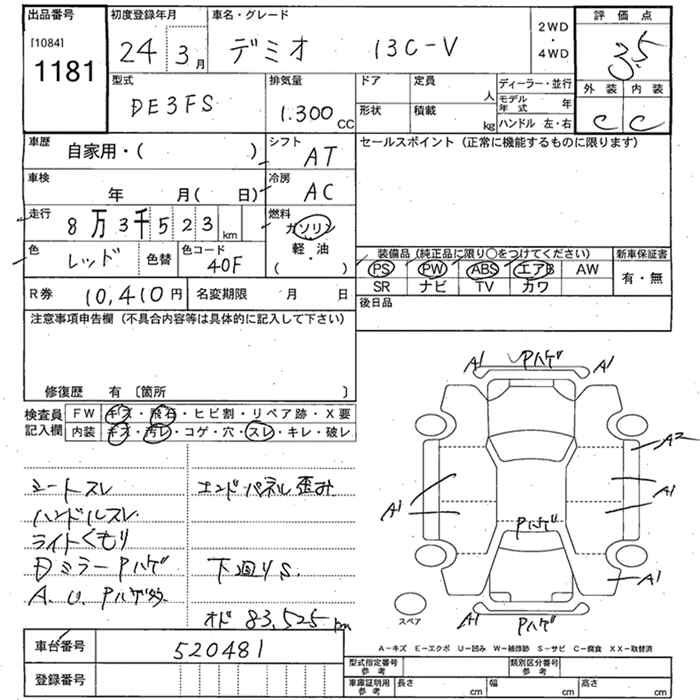 出品番号
[1084]
1181
初度登録年月
24 3月
車名・グレード
デミオ 13C-V
2WD
・
4WD
評価点
3.5
外装 内装
C C
型式
DE3FS
排気量
1.300cc
ドア 定員 人
形状 積載 kg
ディーラー・並行
モデル年式 年
ハンドル 左・右
車歴
自家用・( )
シフト
AT
セールスポイント (正常に機能するものに限ります)
車検
年 月( 日)
冷房
AC
走行
8万3千523km
燃料
ガソリン
軽・油
( )
色
レッド
色替
色コード
40F
装備品(純正品に限り○をつけてください)
PS PW ABS エアB AW
SR ナビ TV カワ
新車保証書
有・無
R券
10,410円
名変期限 月 日
後日品
注意事項申告欄(不具合内容等は具体的に記入して下さい)
修復歴 有〔箇所 〕
検査員記入欄
FW キズ・飛石・ヒビ割・リペア跡・X要
内装 キズ・汚レ・コゲ・穴・スレ・キレ・破レ
シートスレ
ハンドルスレ
ライトくもり
Dミラー Pハゲ
A.U. Pハゲ多
エンドパネル歪み
下廻りS.
オド 83,525km
A1 Pハゲ A1
A2
A1
A1
A1
A1
Pハゲ
A1
A1 Pハゲ
スペア
車台番号
520481
登録番号
A-キズ E-エクボ U-凹み W-補修跡 S-サビ C-腐食 XX-取替済
型式指定番号
参考
類別区分番号
参考
車庫証明用
参考
長さ cm 幅 cm 高さ cm